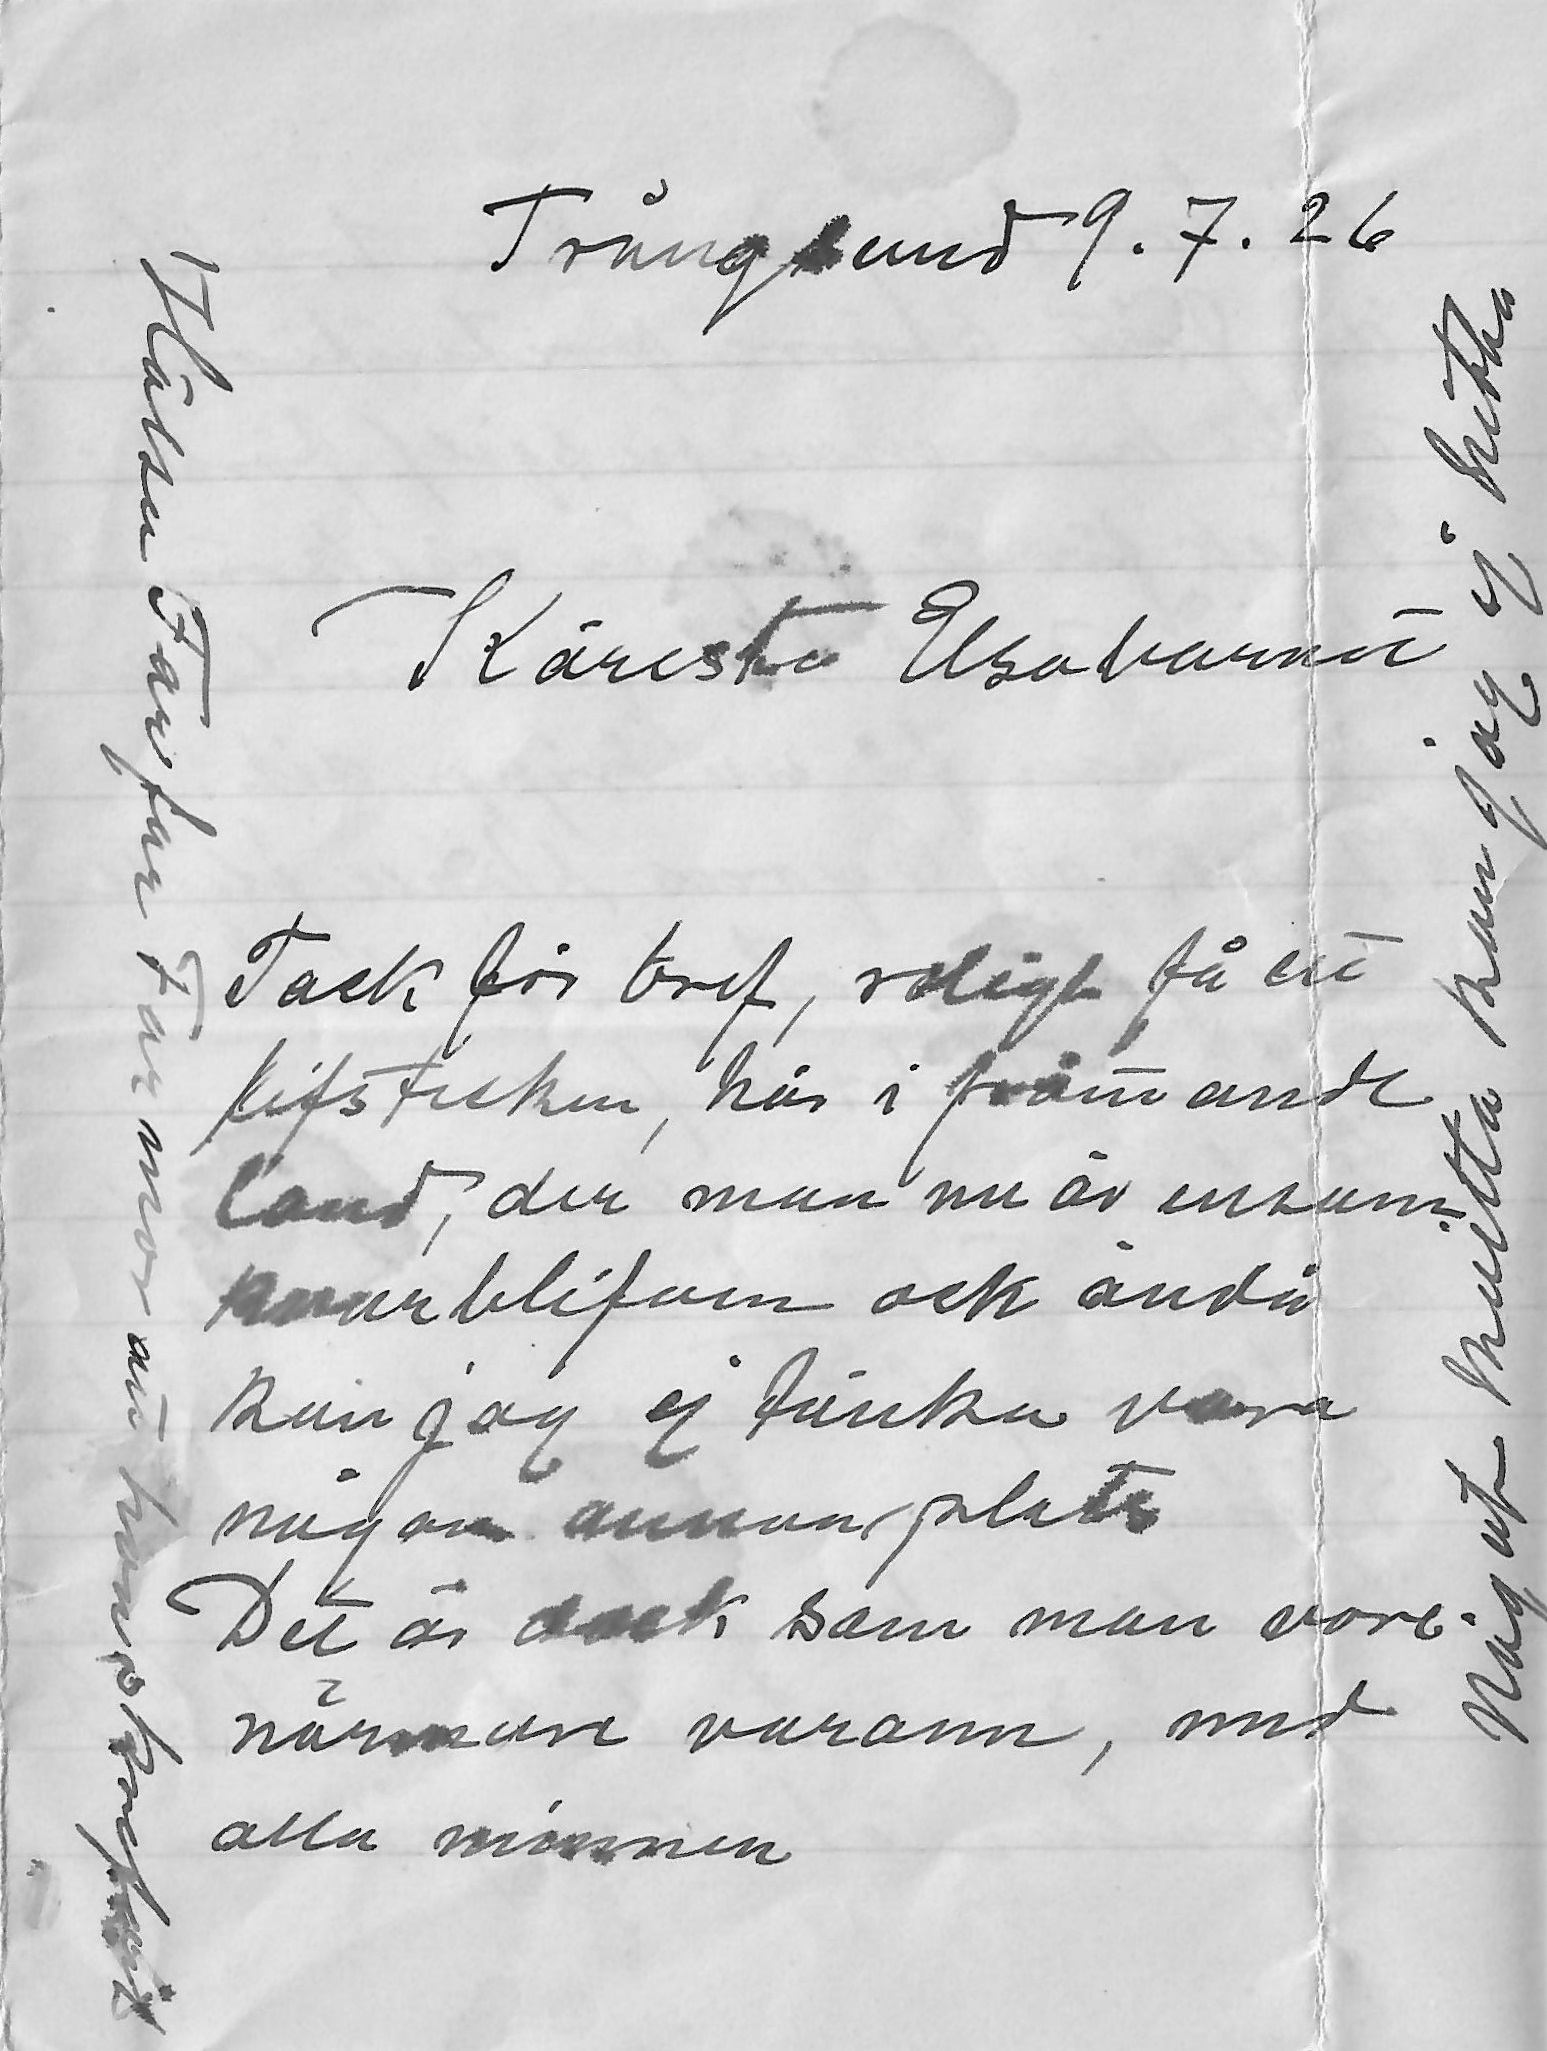 Trångsund 9.7.26
Käresta Elsabarnet
Tack för bref, roligt få ett
lifstecken, här i främmande
land, der man nu är ensam
kvarblifven ock ändå
kan jag ej tänka vara
någon annan plats
Det är dock som man vore
närmare varann, med
alla minnen
Hälsa Farfar Farmor att
Något hvitta kan jag ej hitta